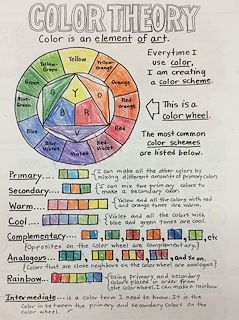 COLOR THEORY
Color is an element of art.
Everytime I
use color,
I am creating
a color scheme.
Yellow
Yellow-Green
Yellow-Orange
Green
Orange
Blue-Green
Red-Orange
Blue
Red
Blue-Violet
Violet
Red-Violet
Y
O
R
V
B
G
This is a
color wheel.
The most common
color schemes
are listed below.
Primary....
I can make all the other colors by
mixing different amounts of primary colors
Secondary....
I can mix two primary colors to
make a secondary color.
Warm....
Yellow and all the colors with
red and orange tones are warm.
Cool....
Violet and all the colors with
blue and green tones are cool.
Complementary.... etc
(Opposites on the color wheel are complementary.)
Analogous.... and so on.
(Colors that are close neighbors on the color wheel are analogous.)
Rainbow...
Using primary and secondary
colors placed in order from
the color wheel, I can make a rainbow
Intermediate.... is a color term I need to know. It is the
color in between the primary and secondary colors on the
color wheel.